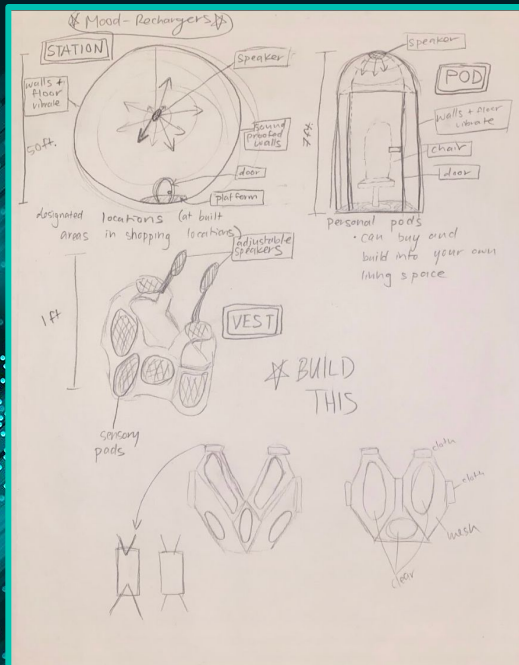 Mood-Rechargers
STATION
speaker
walls +
floor
vibrate
50ft.
sound
proofed
walls
door
platform
designated locations (at built
areas in shopping locations)
speaker
POD
7ft.
walls + floor
vibrate
chair
door
personal pods
• can buy and
build into your own
living space
adjustable
speakers
1 ft
VEST
sensory
pods
BUILD
THIS
cloth
cloth
mesh
clear